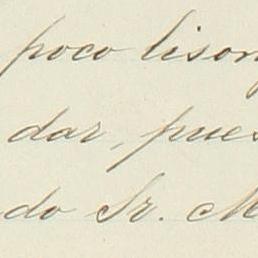 poco lison
dar, pues
do Sr. M